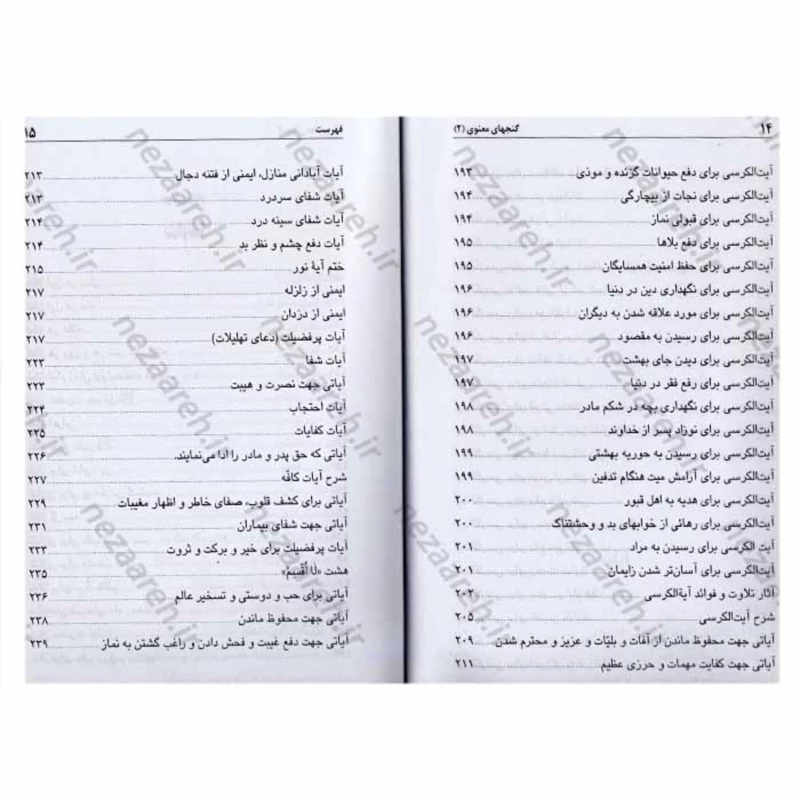 ۱۴ گنجهای معنوی (۲)
آیت‌الکرسی برای دفع حیوانات گزنده و موذی ۱۹۳
آیت‌الکرسی برای نجات از بیچارگی ۱۹۴
آیت‌الکرسی برای قبولی نماز ۱۹۴
آیت‌الکرسی برای دفع بلاها ۱۹۵
آیت‌الکرسی برای حفظ امنیت همسایگان ۱۹۵
آیت‌الکرسی برای نگهداری دین در دنیا ۱۹۶
آیت‌الکرسی برای مورد علاقه شدن به دیگران ۱۹۶
آیت‌الکرسی برای رسیدن به مقصود ۱۹۶
آیت‌الکرسی برای دیدن جای بهشت ۱۹۷
آیت‌الکرسی برای رفع فقر در دنیا ۱۹۷
آیت‌الکرسی برای نگهداری بچه در شکم مادر ۱۹۸
آیت‌الکرسی برای نوزاد پسر از خداوند ۱۹۸
آیت‌الکرسی برای رسیدن به حوریه بهشتی ۱۹۹
آیت‌الکرسی برای آرامش میت هنگام تدفین ۱۹۹
آیت‌الکرسی برای هدیه به اهل قبور ۲۰۰
آیت‌الکرسی برای رهائی از خوابهای بد و وحشتناک ۲۰۰
آیت الکرسی برای رسیدن به مراد ۲۰۱
آیت‌الکرسی برای آسان‌تر شدن زایمان ۲۰۱
آثار تلاوت و فوائد آیةالکرسی ۲۰۲
شرح آیت‌الکرسی ۲۰۵
آیاتی جهت محفوظ ماندن از آفات و بلیّات و عزیز و محترم شدن ۲۰۹
آیاتی جهت کفایت مهمات و حرزی عظیم ۲۱۱
فهرست ۱۵
آیات آبادانی منازل، ایمنی از فتنه دجال ۲۱۳
آیات شفای سردرد ۲۱۳
آیات شفای سینه درد ۲۱۴
آیات دفع چشم و نظر بد ۲۱۴
ختم آیهٔ نور ۲۱۵
ایمنی از زلزله ۲۱۷
ایمنی از دزدان ۲۱۷
آیات پرفضیلت (دعای تهلیلات) ۲۱۷
آیات شفا ۲۲۳
آیاتی جهت نصرت و هیبت ۲۲۳
آیات احتجاب ۲۲۴
آیات کفایات ۲۲۵
آیاتی که حق پدر و مادر را ادا می‌نمایند. ۲۲۶
شرح آیات کافّه ۲۲۷
آیاتی برای کشف قلوب، صفای خاطر و اظهار مغیبات ۲۲۹
آیاتی جهت شفای بیماران ۲۳۱
آیات پرفضیلت برای خیر و برکت و ثروت ۲۳۳
هشت «لَا أُقْسِمُ» ۲۳۵
آیاتی برای حب و دوستی و تسخیر عالم ۲۳۶
آیاتی جهت محفوظ ماندن ۲۳۸
آیاتی جهت دفع غیبت و فحش دادن و راغب گشتن به نماز ۲۳۹
nezaareh.ir
nezaareh.ir
nezaareh.ir
nezaareh.ir
nezaareh.ir
nezaareh.ir
nezaareh.ir
nezaareh.ir
nezaareh.ir
nezaareh.ir